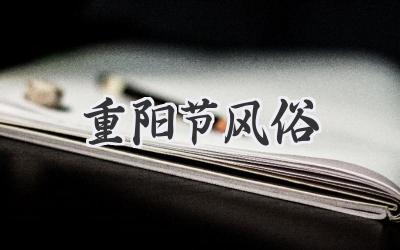 重阳节风俗